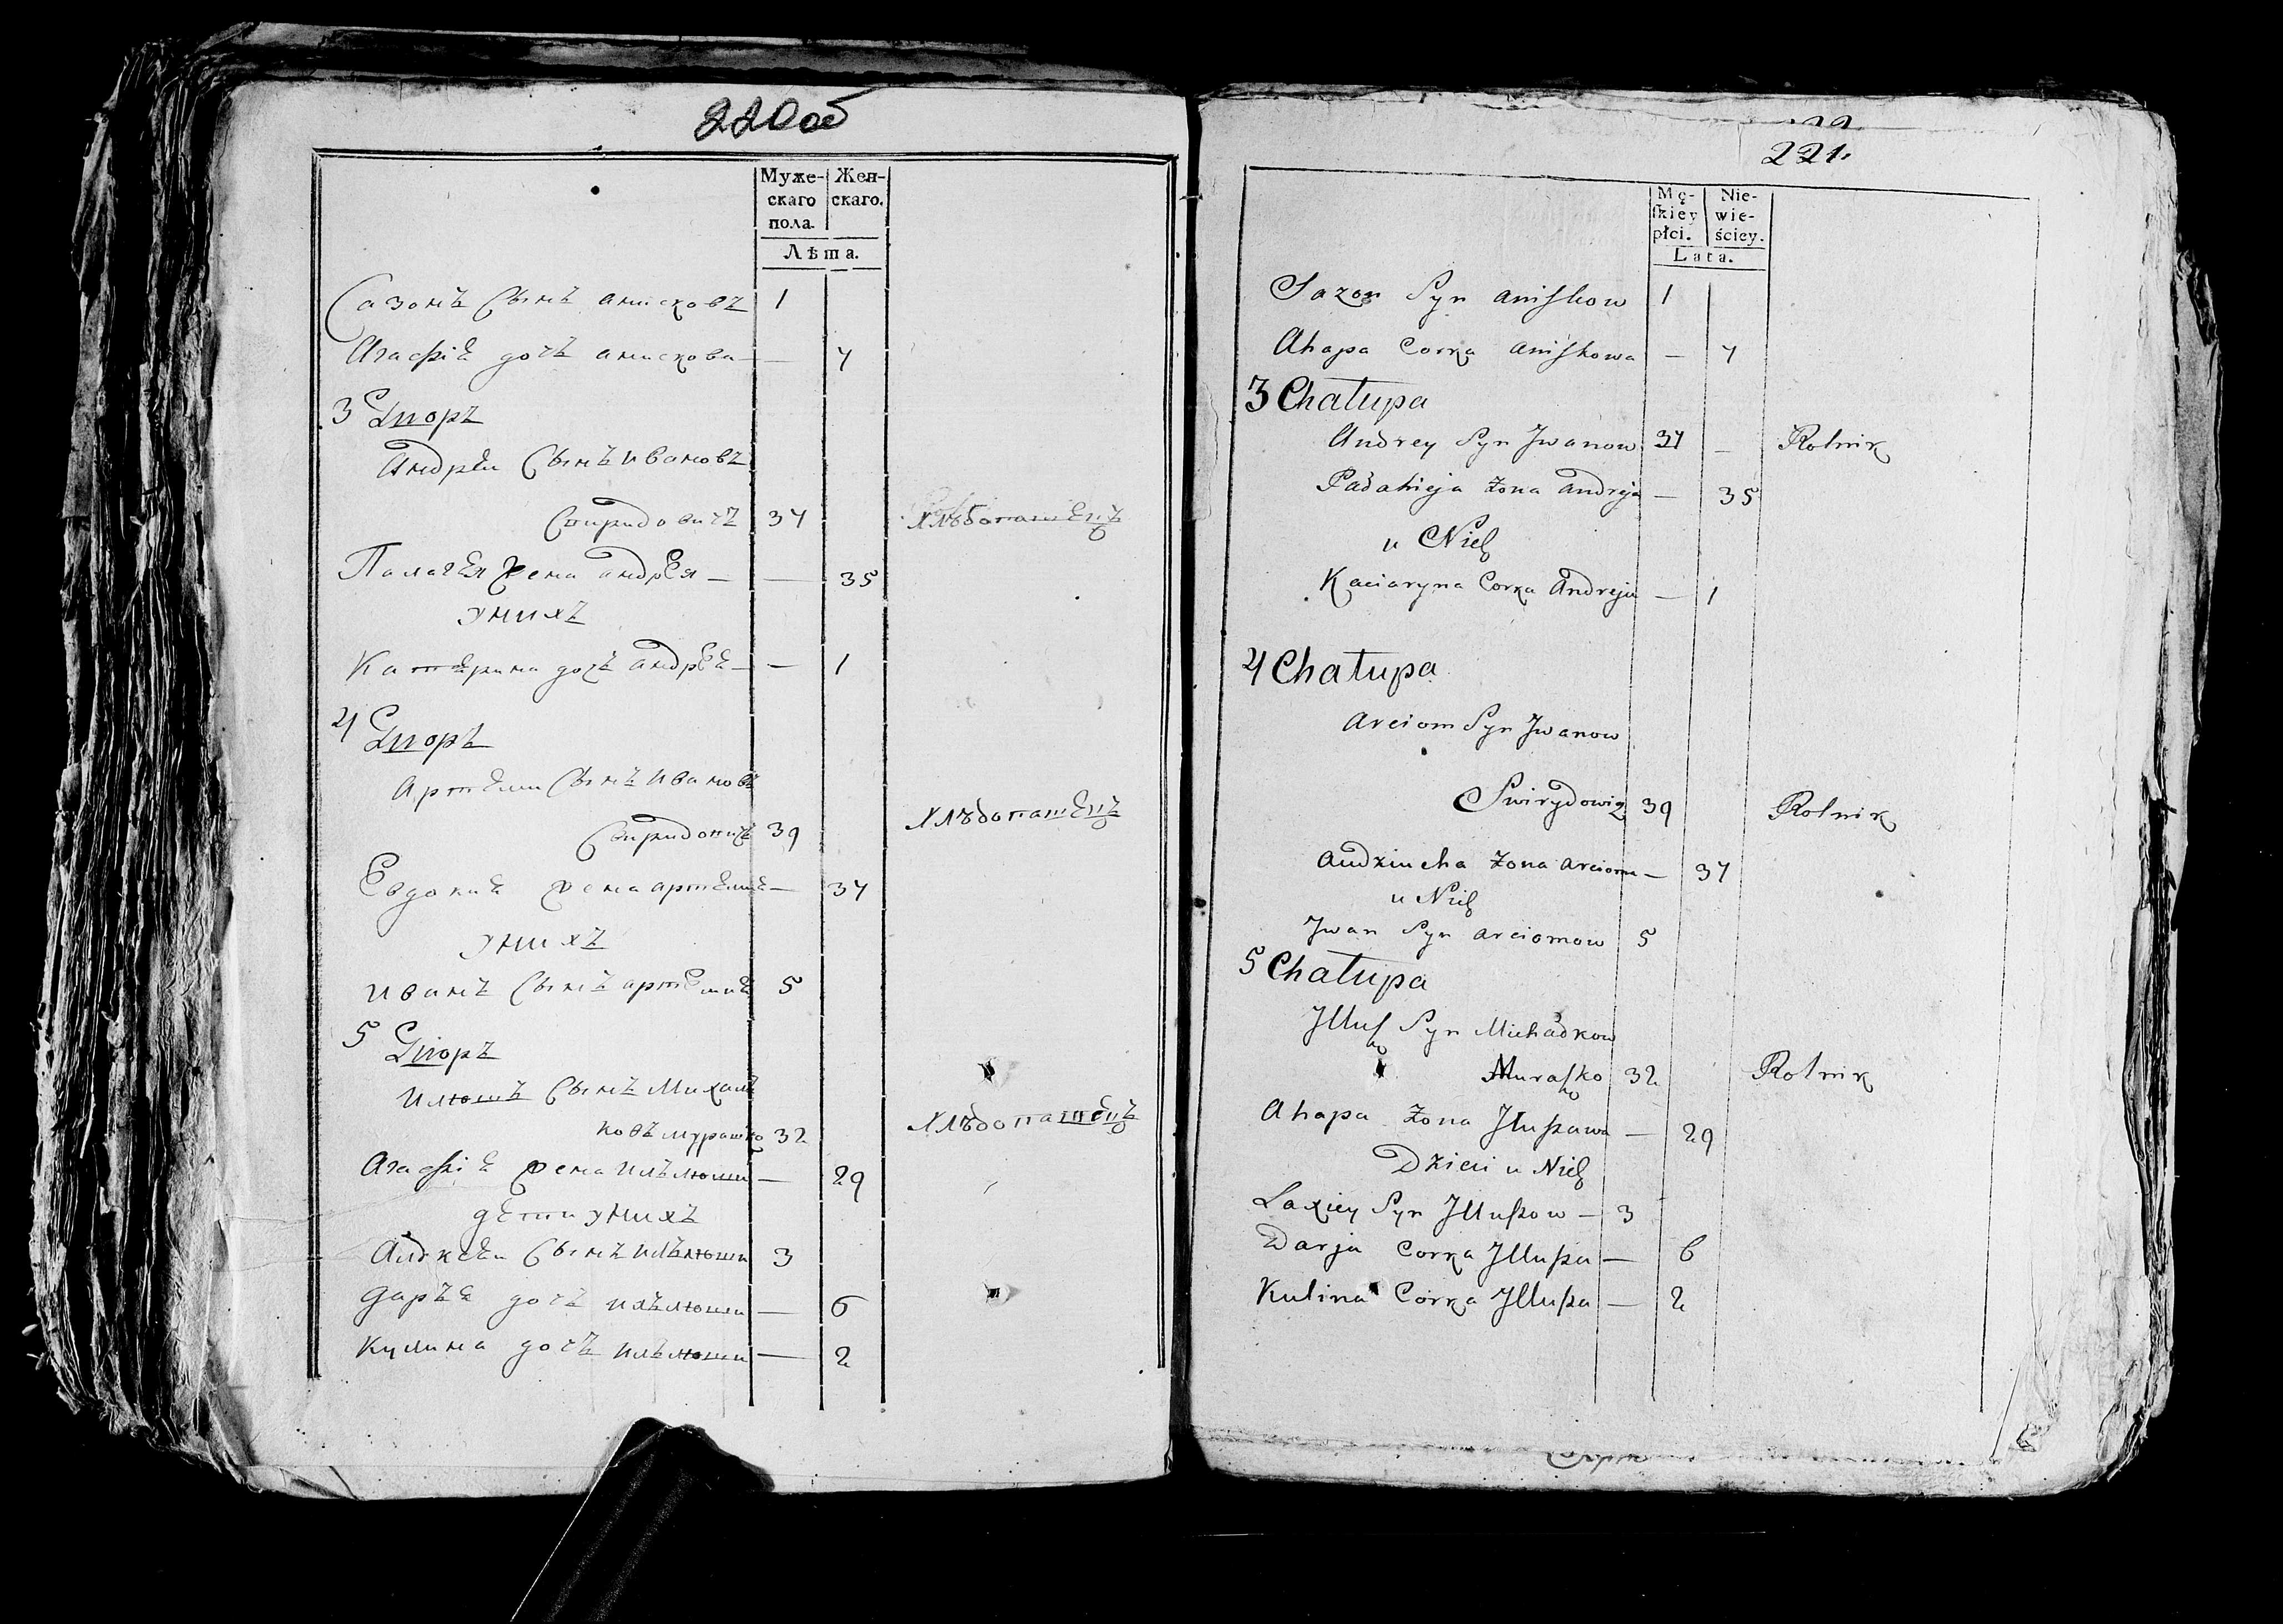 220об
Муже- Жен-
скаго скаго.
пола.
Лѣта.
Сазонъ Сынъ анисковъ 1
Агафіѣ дочъ анискова — 4
3 Дворъ
Андрѣи Сынъ Ивановъ
Свиридовичъ 34 Хлѣбопашецъ
Палагея жена андрея — — 35
у нихъ
Катерина дочъ андрѣѣ — — 1
4 Дворъ
Артѣми Сынъ Ивановъ
Свиридовичъ 39 Хлѣбопашецъ
Евдокиѣ жена артѣмиѣ — 34
у нихъ
Иванъ Сынъ артѣмиѣ 5
5 Дворъ
Илюшъ Сынъ Михаль
ковъ мурашко 32 Хлѣбопашецъ
Агафіѣ жена Илъюши — 29
дети у нихъ
Алексѣи Сынъ Илъюши 3
даръѣ дочъ Илъюши — 6
Кулина дочъ Илъюши — 2
221.
Mę- Nie-
ſkiey wie-
płci. ściey.
Lata.
Sazon Syn aniſkow 1
Ahapa Corka aniſkowa — 4
3 Chałupa
Andrey Syn Jwanow 34 — Rolnik
Pałahieja żona andreja — 35
u Nich
Kaciaryna Corka Andreja — 1
4 Chałupa
Arciom Syn Jwanow
Swirydowicz 39 Rolnik
Audziucha żona arcioma — 34
u Nich
Jwan Syn arciomow 5
5 Chałupa
Jlluſz Syn Michałkow
Muraſzko 32 Rolnik
Ahapa żona Jłuſzawa — 29
Dzieci u Nich
Laxiey Syn Jlluſzow — 3
Darja Corka Jlluſza — 6
Kulina Corka Jlluſza — 2